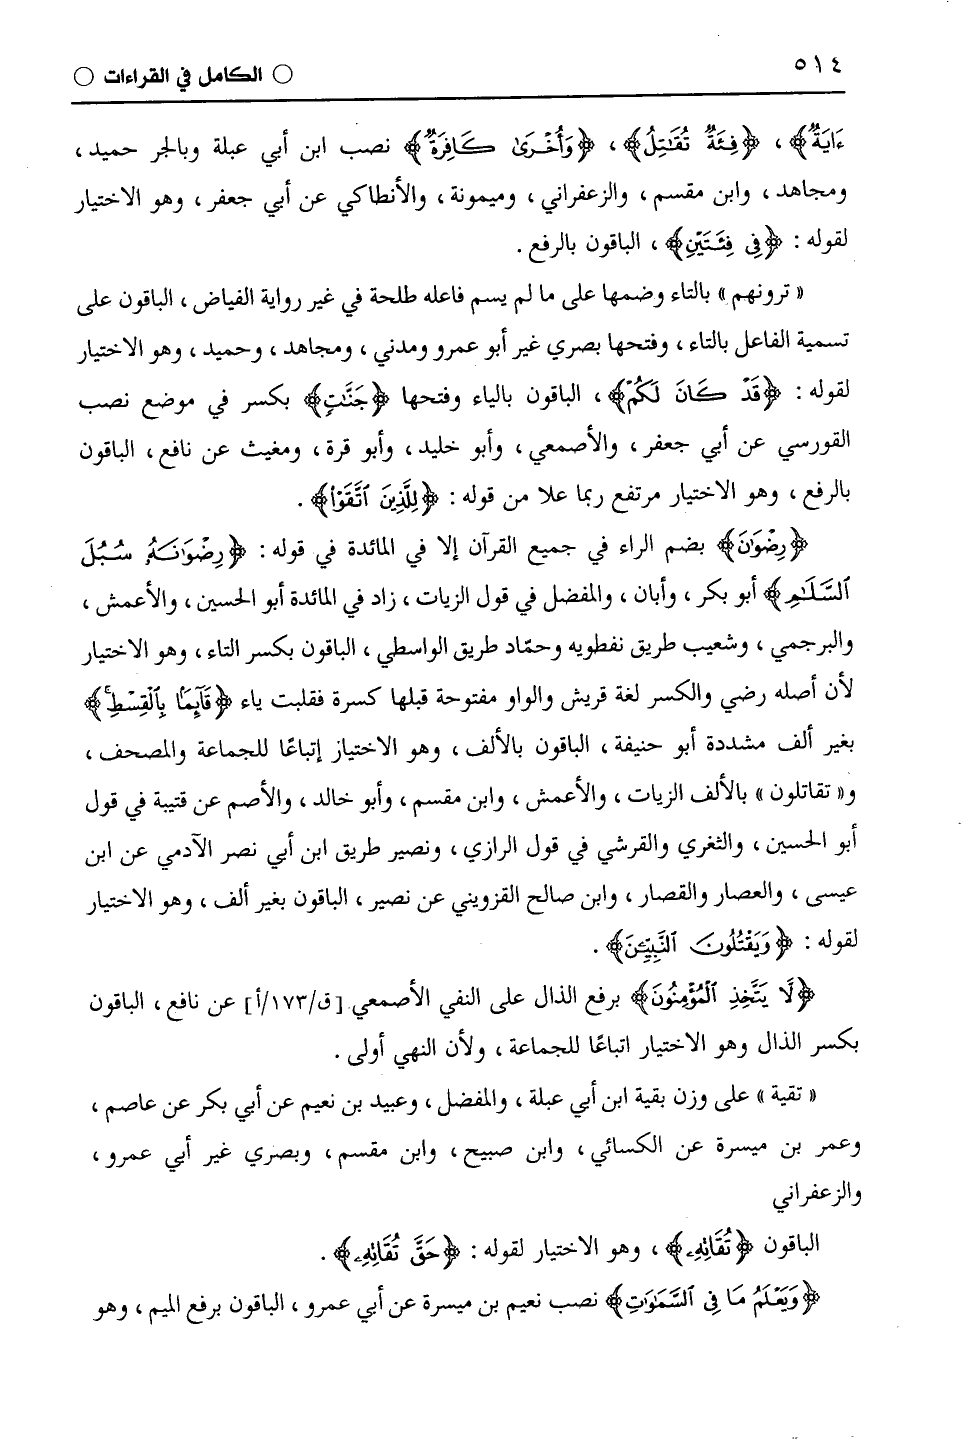 ٥١٤
○ الكامل في القراءات ○
ءَايَةٌ﴾ ، ﴿فِئَةٌ تُقَٰتِلُ﴾ ، ﴿وَأُخْرَىٰ كَافِرَةٌ﴾ نصب ابن أبي عبلة وبالجر حميد ،
ومجاهد ، وابن مقسم ، والزعفراني ، وميمونة ، والأنطاكي عن أبي جعفر ، وهو الاختيار
لقوله : ﴿فِى فِئَتَيْنِ﴾ ، الباقون بالرفع .
« ترونهم » بالتاء وضمها على ما لم يسم فاعله طلحة في غير رواية الفياض ، الباقون على
تسمية الفاعل بالتاء ، وفتحها بصري غير أبو عمرو ومدني ، ومجاهد ، وحميد ، وهو الاختيار
لقوله : ﴿قَدْ كَانَ لَكُمْ﴾ ، الباقون بالياء وفتحها ﴿جَنَّٰتٍ﴾ بكسر في موضع نصب
القورسي عن أبي جعفر ، والأصمعي ، وأبو خليد ، وأبو قرة ، ومغيث عن نافع ، الباقون
بالرفع ، وهو الاختيار مرتفع ربما علا من قوله : ﴿لِلَّذِينَ ٱتَّقَوْا۟﴾ .
﴿رِضْوَٰنَ﴾ بضم الراء في جميع القرآن إلا في المائدة في قوله : ﴿رِضْوَٰنَهُۥ سُبُلَ
ٱلسَّلَٰمِ﴾ أبو بكر ، وأبان ، والمفضل في قول الزيات ، زاد في المائدة أبو الحسين ، والأعمش ،
والبرجمي ، وشعيب طريق نفطويه وحمّاد طريق الواسطي ، الباقون بكسر التاء ، وهو الاختيار
لأن أصله رضي والكسر لغة قريش والواو مفتوحة قبلها كسرة فقلبت ياء ﴿قَآئِمًۢا بِٱلْقِسْطِ ۚ﴾
بغير ألف مشددة أبو حنيفة ، الباقون بالألف ، وهو الاختياز إتباعًا للجماعة والمصحف ،
و« تقاتلون » بالألف الزيات ، والأعمش ، وابن مقسم ، وأبو خالد ، والأصم عن قتيبة في قول
أبو الحسين ، والثغري والقرشي في قول الرازي ، ونصير طريق ابن أبي نصر الآدمي عن ابن
عيسى ، والعصار والقصار ، وابن صالح القزويني عن نصير ، الباقون بغير ألف ، وهو الاختيار
لقوله : ﴿وَيَقْتُلُونَ ٱلنَّبِيِّـۧنَ﴾ .
﴿لَّا يَتَّخِذِ ٱلْمُؤْمِنُونَ﴾ برفع الذال على النفي الأصمعي [ق/١٧٣/أ] عن نافع ، الباقون
بكسر الذال وهو الاختيار اتباعًا للجماعة ، ولأن النهي أولى .
« تقية » على وزن بقية ابن أبي عبلة ، والمفضل ، وعبيد بن نعيم عن أبي بكر عن عاصم ،
وعمر بن ميسرة عن الكسائي ، وابن صبيح ، وابن مقسم ، وبصري غير أبي عمرو ،
والزعفراني
الباقون ﴿تُقَاتِهِۦ﴾ ، وهو الاختيار لقوله : ﴿حَقَّ تُقَاتِهِۦ﴾ .
﴿وَيَعْلَمُ مَا فِى ٱلسَّمَٰوَٰتِ﴾ نصب نعيم بن ميسرة عن أبي عمرو ، الباقون برفع الميم ، وهو